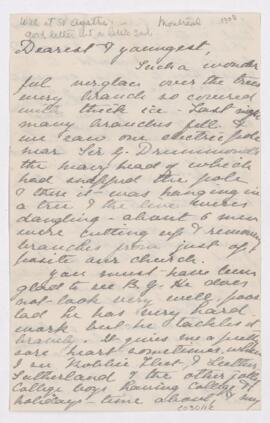 Will at St Agathe; Montreal 1908
good letter but a little sad.
Dearest & youngest,
Such a wonder
ful verglas over the trees
every branch so covered
with thick ice - Last night
many branches fell. &
we saw one electric pole
near Sir G. Drummonds
the heavy head of which
had snapped the pole
& then it was hanging in
a tree & the live wires
dangling - about 6 men
were cutting up & removing
branches from just op
posite our church.
You must have been
glad to see B.G. He does
not look very well, poor
lad he has very hard
work but he tackles it
bravely. It gives me a pretty
sore heart sometimes, when
I see Robbie Fleet & Leslie
Sutherland & the other jolly
College boys having College &
holidays-time about, & my